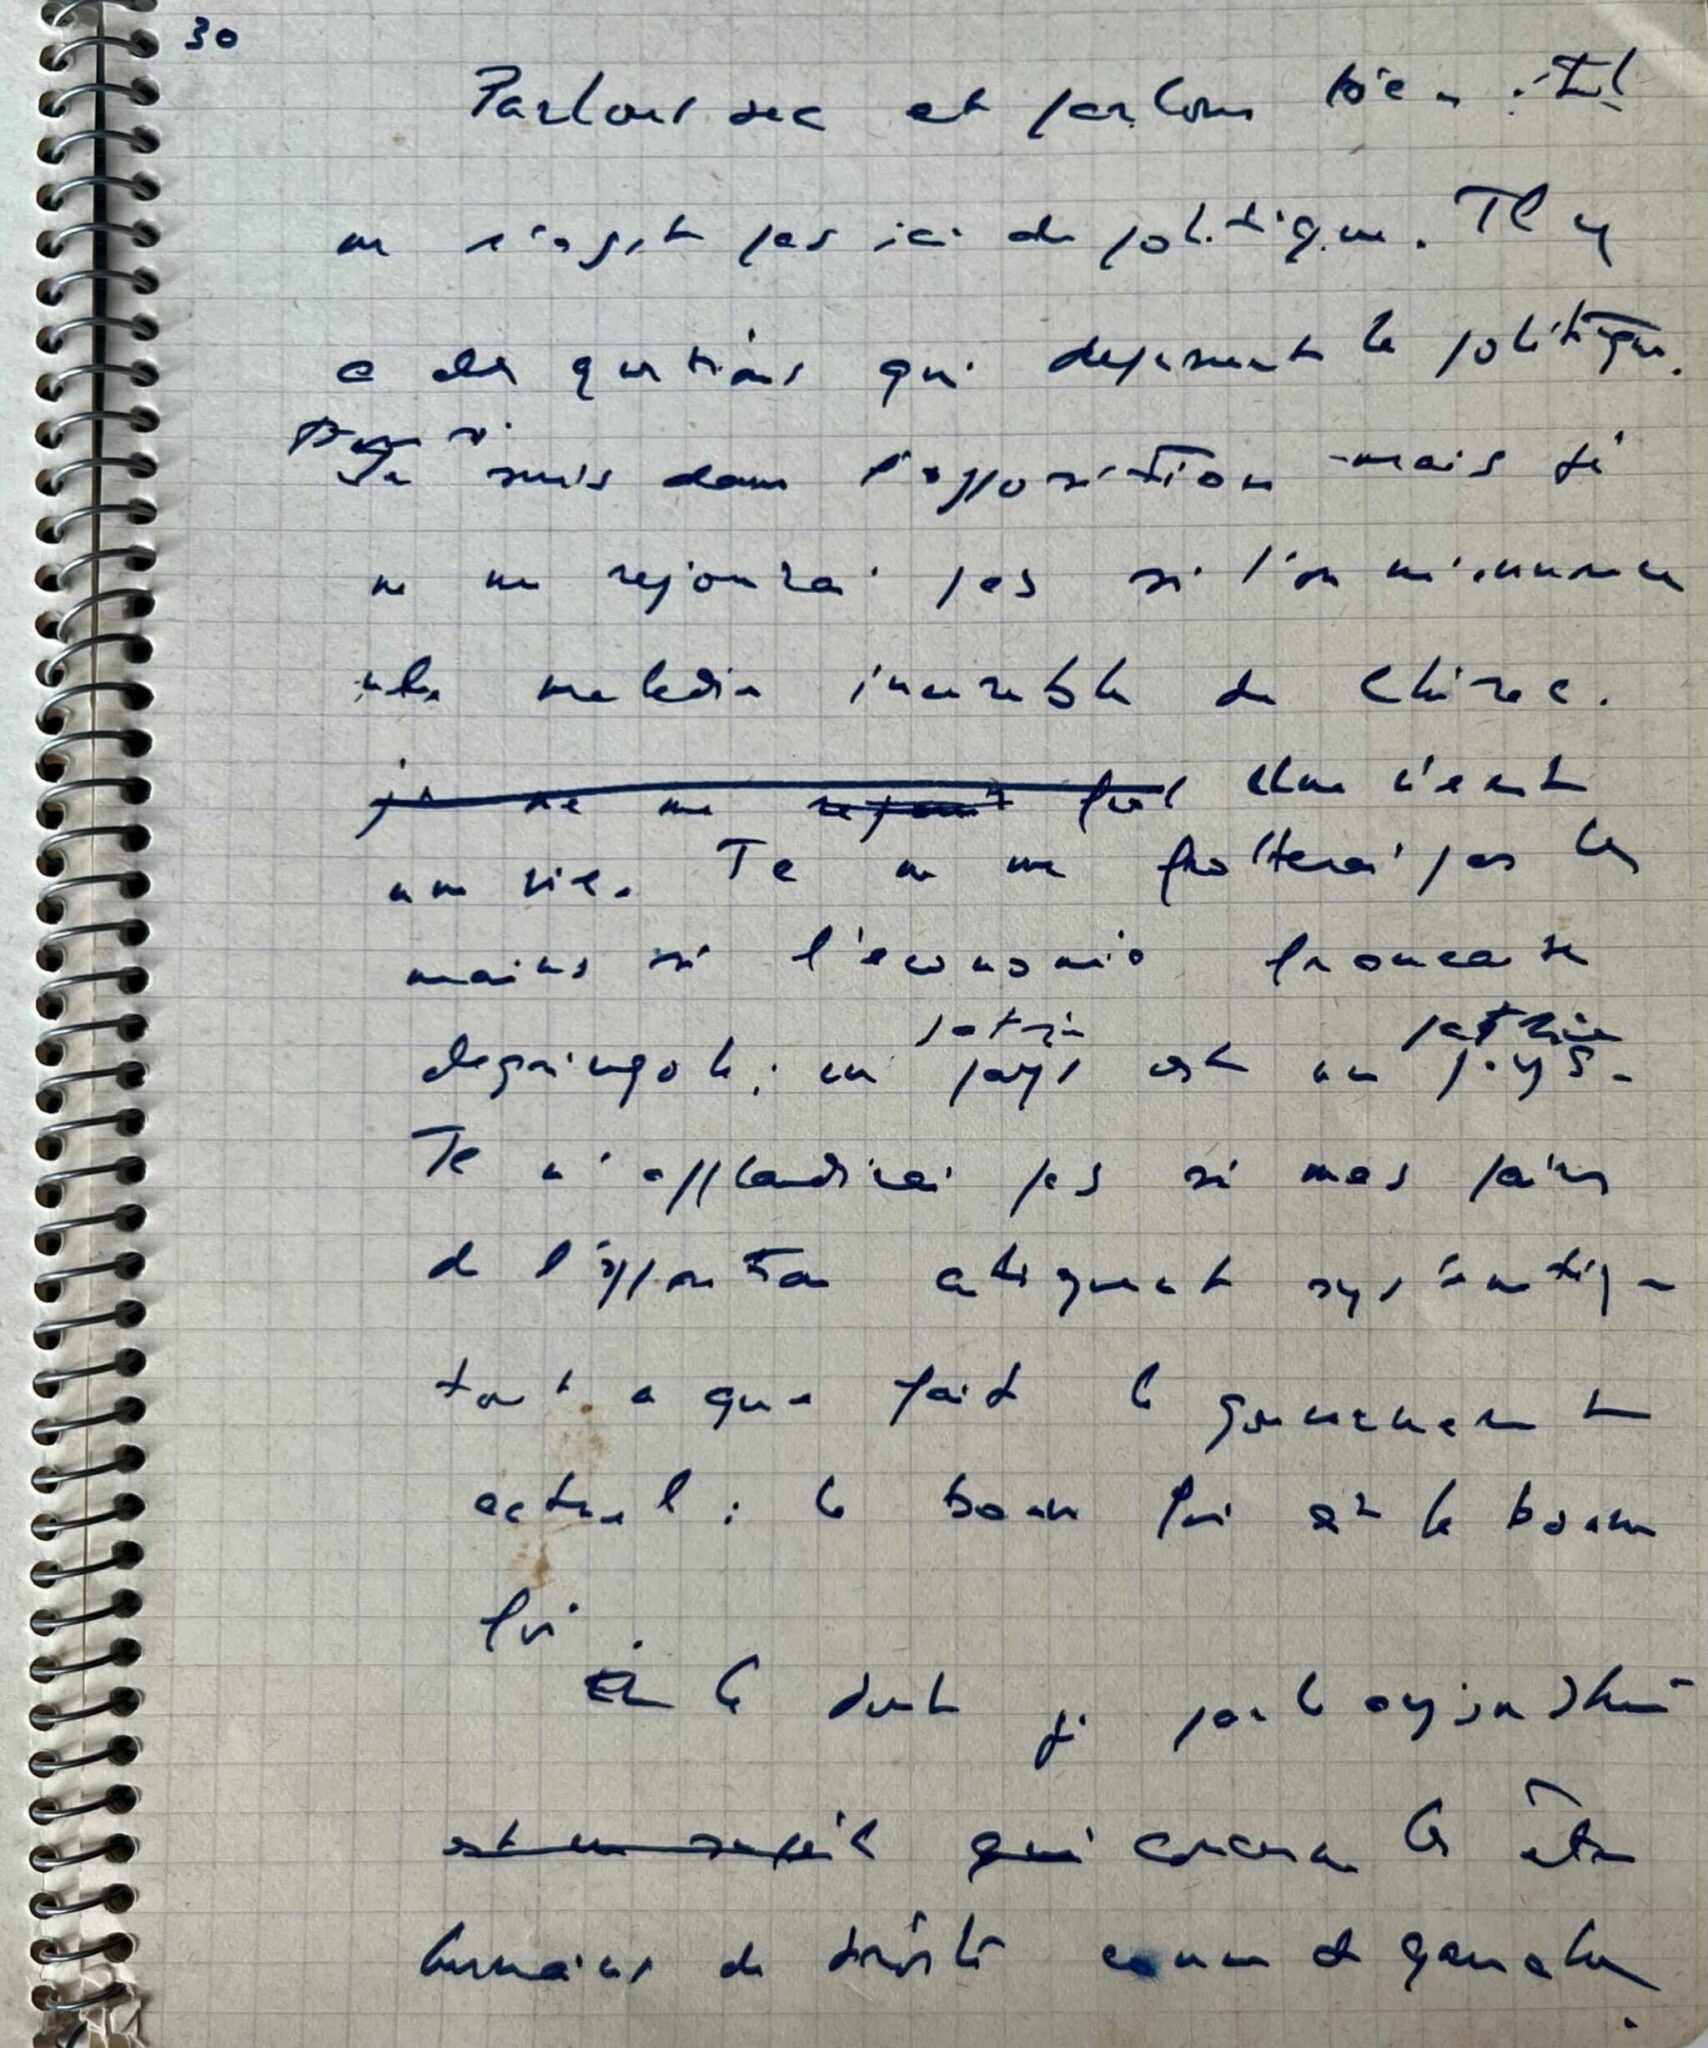 30
Parlons sec et parlons bien : Il
ne s'agit pas ici de politique. Il y
a des questions qui depassent la politique.
Je suis dans l'opposition mais je
ne me rejouirai pas si l'on m'annonce
une maladie incurable de Chirac.
je ne me rejouis pas Une vie est
une vie. Je ne me frotterai pas les
mains si l'economie francaise
degringole : un pays est un pays.
patrie patrie
Je n'applaudirai pas si mes pairs
de l'opposition attaquent systematiq
tout ce que fait le gouvernement
actuel : la bonne foi est la bonne
foi.
Et ce dont je parle aujourd'hui
est un sujet qui concerne les êtres
humains de droite comme de gauche.